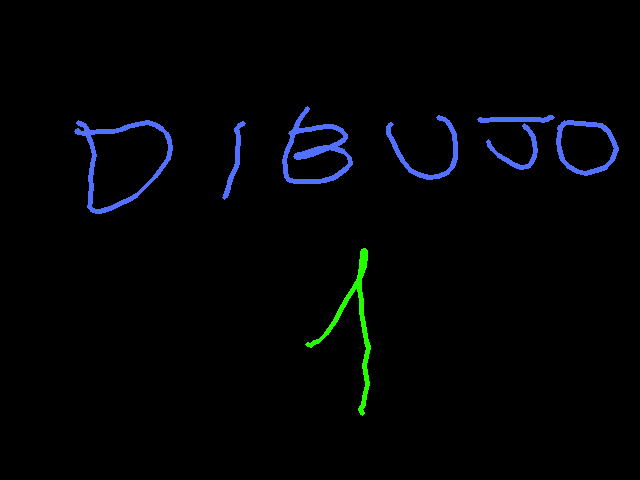 DIBUJO
1